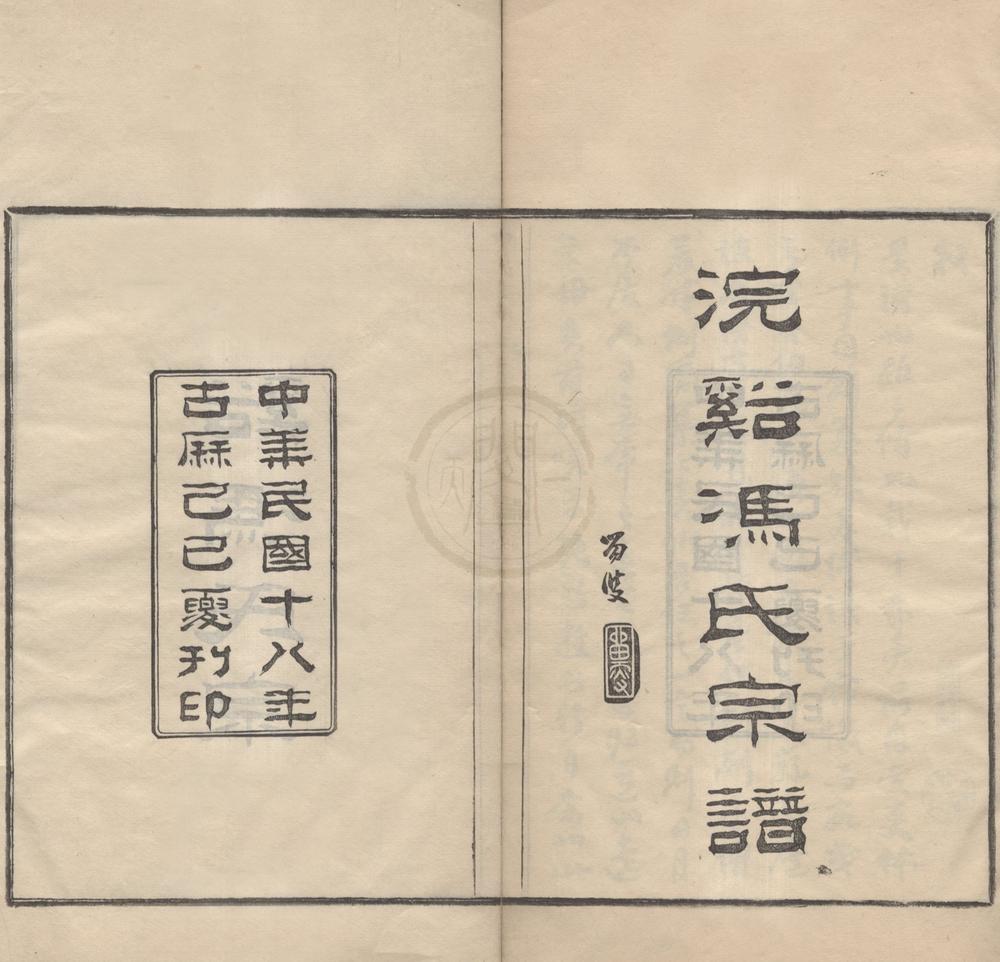 浣谿馮氏宗譜
中華民國十八年
古厤己巳夏刊印